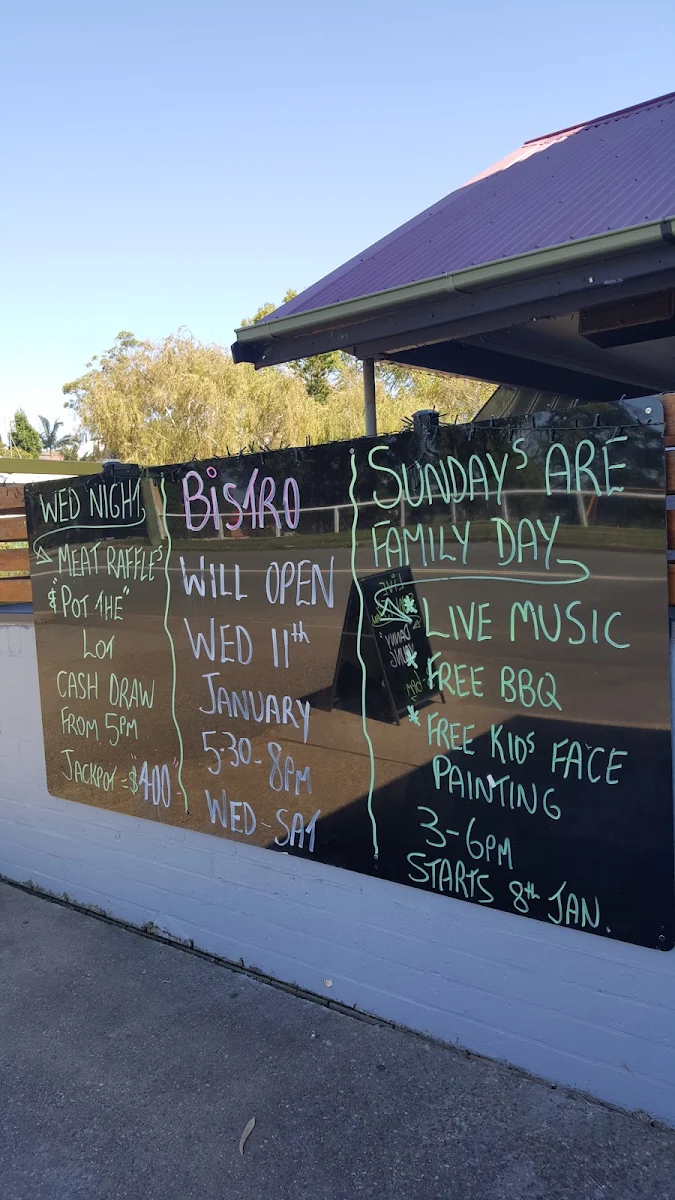 WED NIGHT
MEAT RAFFLE'S
& "POT THE"
LOT
CASH DRAW
FROM 5PM
JACKPOT = $400
BISTRO
WILL OPEN
WED 11th
JANUARY
5-30-8PM
WED-SAT
SUNDAY'S ARE
FAMILY DAY
* LIVE MUSIC
* FREE BBQ
* FREE KIDS FACE
PAINTING
3-6PM
STARTS 8th JAN.
LIVE
DANNY